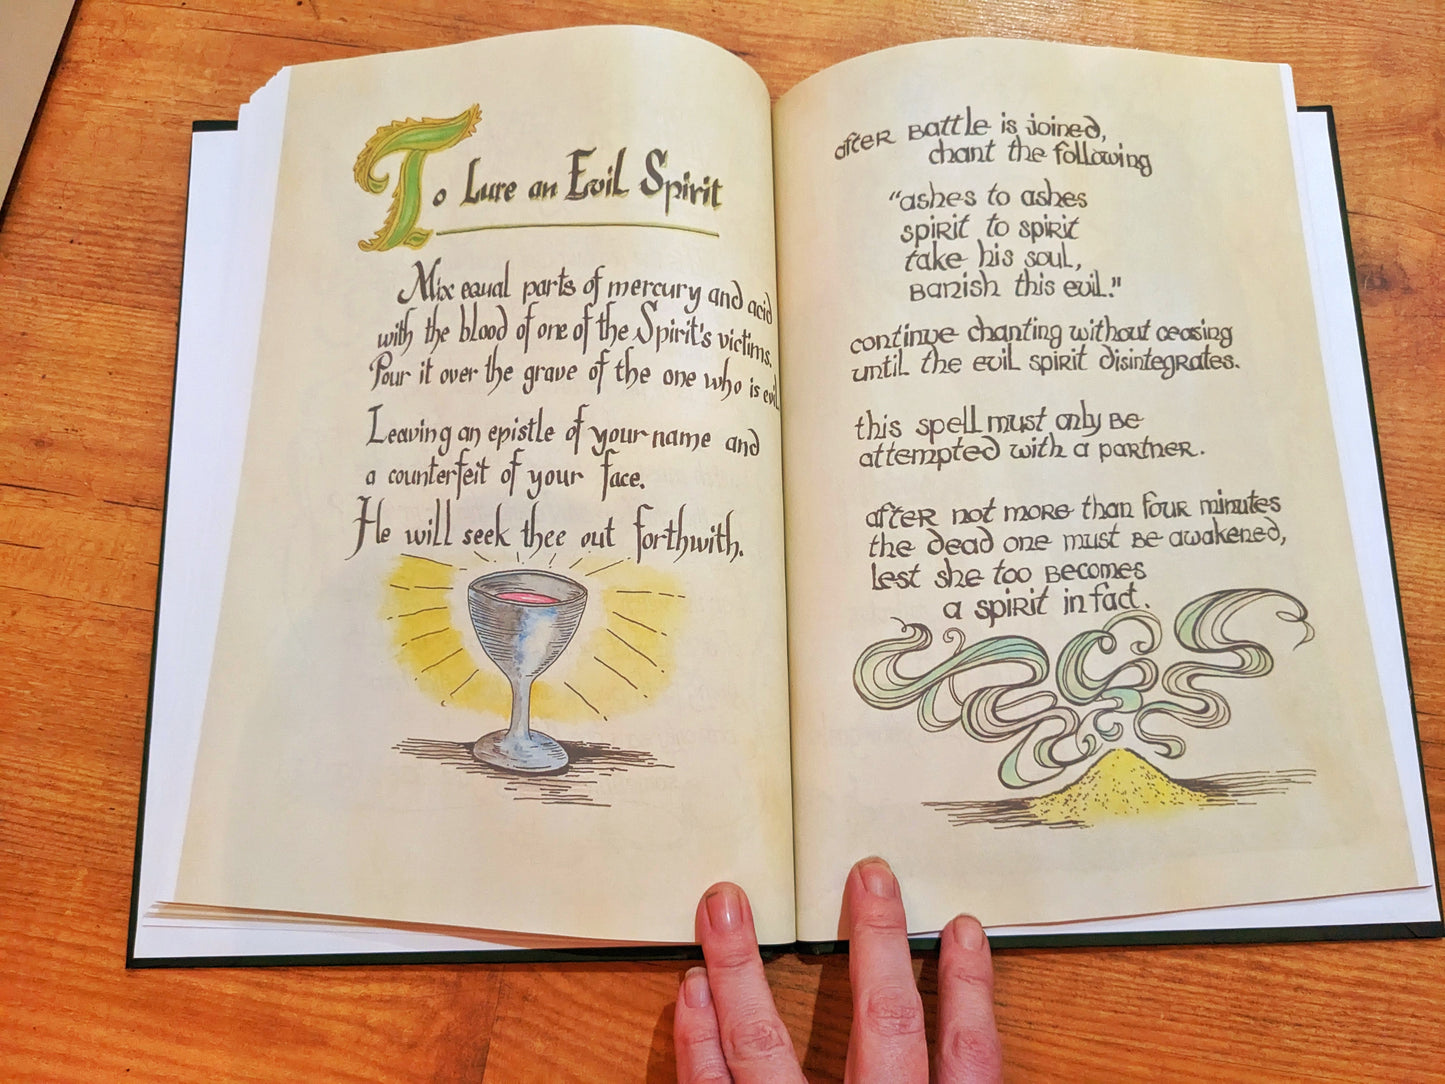 To Lure an Evil Spirit
Mix equal parts of mercury and acid
with the blood of one of the Spirit's victims.
Pour it over the grave of the one who is evil
Leaving an epistle of your name and
a counterfeit of your face.
He will seek thee out forthwith.
after Battle is joined,
chant the following
"ashes to ashes
spirit to spirit
take his soul,
Banish this evil."
continue chanting without ceasing
until the evil spirit disintegrates.
this spell must only be
attempted with a partner.
after not more than four minutes
the dead one must be awakened,
lest she too becomes
a spirit in fact.